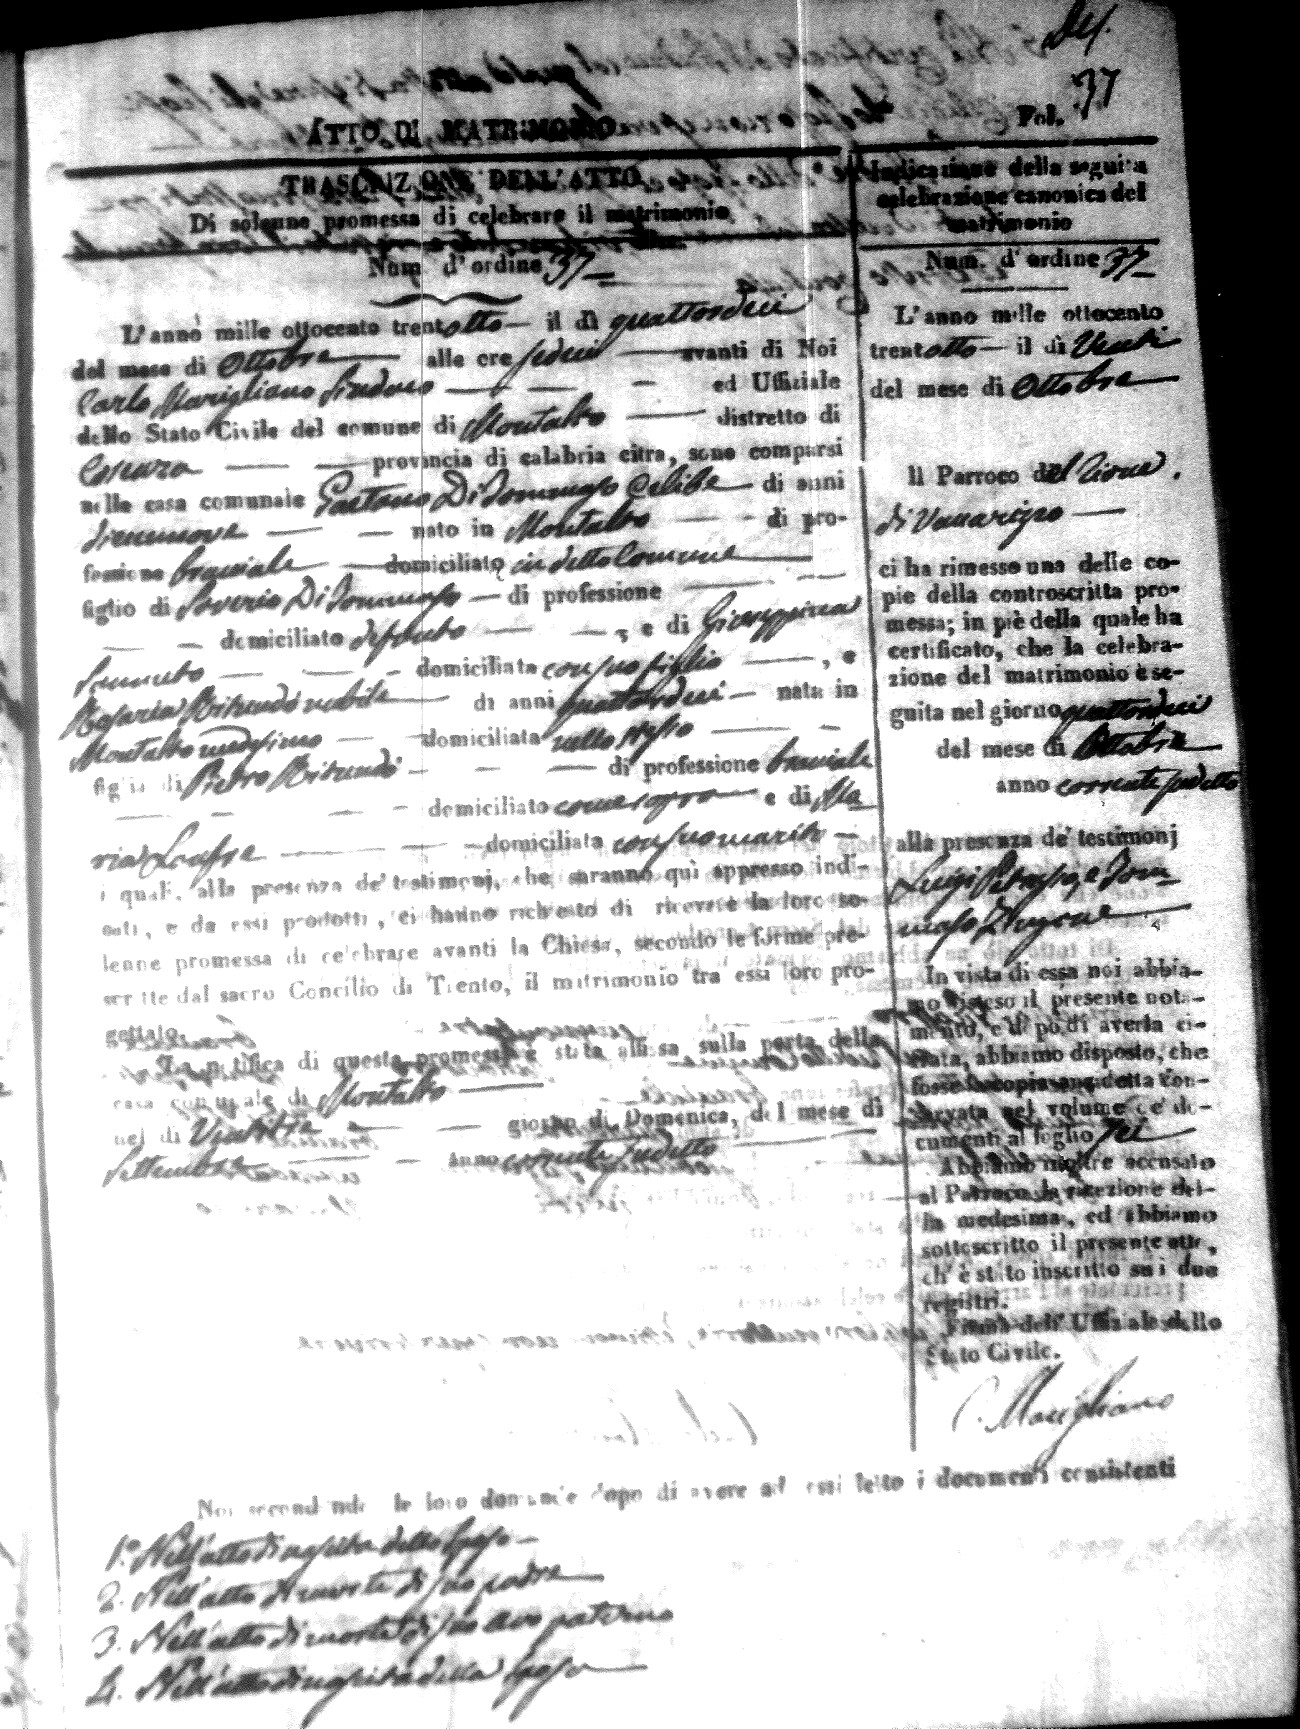 37
Fol.
ATTO DI MATRIMONIO
TRASCRIZIONE DELL'ATTO
Di solenne promessa di celebrare il matrimonio
Num. d'ordine 37
L'anno mille ottocento trentotto il dì quattordeci
del mese di Ottobre alle ore sedeci avanti di Noi
Carlo Marigliano Sindaco ed Uffiziale
dello Stato Civile del comune di Montalto distretto di
Cosenza provincia di calabria citra, sono comparsi
nella casa comunale Gaetano DiTommaso Celibe di anni
nato in Montalto di pro-
fessione bracciale domiciliato in detto Comune
figlio di Saverio DiTommaso di professione
domiciliato defunto , e di Giuseppina
domiciliata con suo figlio , e
Rosaria nubile di anni quattordeci nata in
Montalto medesimo domiciliata nello stesso
figlia di Pietro di professione bracciale
domiciliato come sopra e di Ma
ria domiciliata con suo marito
i quali, alla presenza de' testimonj, che saranno quì appresso indi-
cati, e da essi prodotti, ci hanno richiesto di ricevere la loro so-
lenne promessa di celebrare avanti la Chiesa, secondo le forme pre-
scritte dal sacro Concilio di Trento, il matrimonio tra essi loro pro-
gettato.
La notifica di questa promessa è stata affissa sulla porta della
casa comunale di Montalto
nel dì giorno di Domenica, del mese di
Settembre anno corrente sudetto
Noi secondando le loro domande dopo di avere ad essi letto i documenti consistenti
1.º Nell'atto di nascita dello sposo
2. Nell'atto di morte di suo padre
3. Nell'atto di morte di suo avo paterno
4. Nell'atto di nascita della sposa
Indicazione della seguita
celebrazione canonica del
matrimonio
Num. d'ordine 37
L'anno mille ottocento
trentotto il dì Venti
del mese di Ottobre
Il Parroco del
di
ci ha rimesso una delle co-
pie della controscritta pro-
messa; in piè della quale ha
certificato, che la celebra-
zione del matrimonio è se-
guita nel giorno quattordeci
del mese di Ottobre
anno corrente sudetto
alla presenza de' testimonj
Luigi e Tom-
maso
In vista di essa noi abbia-
mo disteso il presente nota-
mento, e di più di averla ci-
frata, abbiamo disposto, che
fosse la copia sangidetta con-
servata nel volume de' do-
cumenti al foglio sei
Abbiamo inoltre accusato
al Parroco la ricezione del-
la medesima, ed abbiamo
sottoscritto il presente atto,
ch'è stato inscritto su i due
registri.
Firma dell'Uffiziale dello
Stato Civile.
C. Marigliano